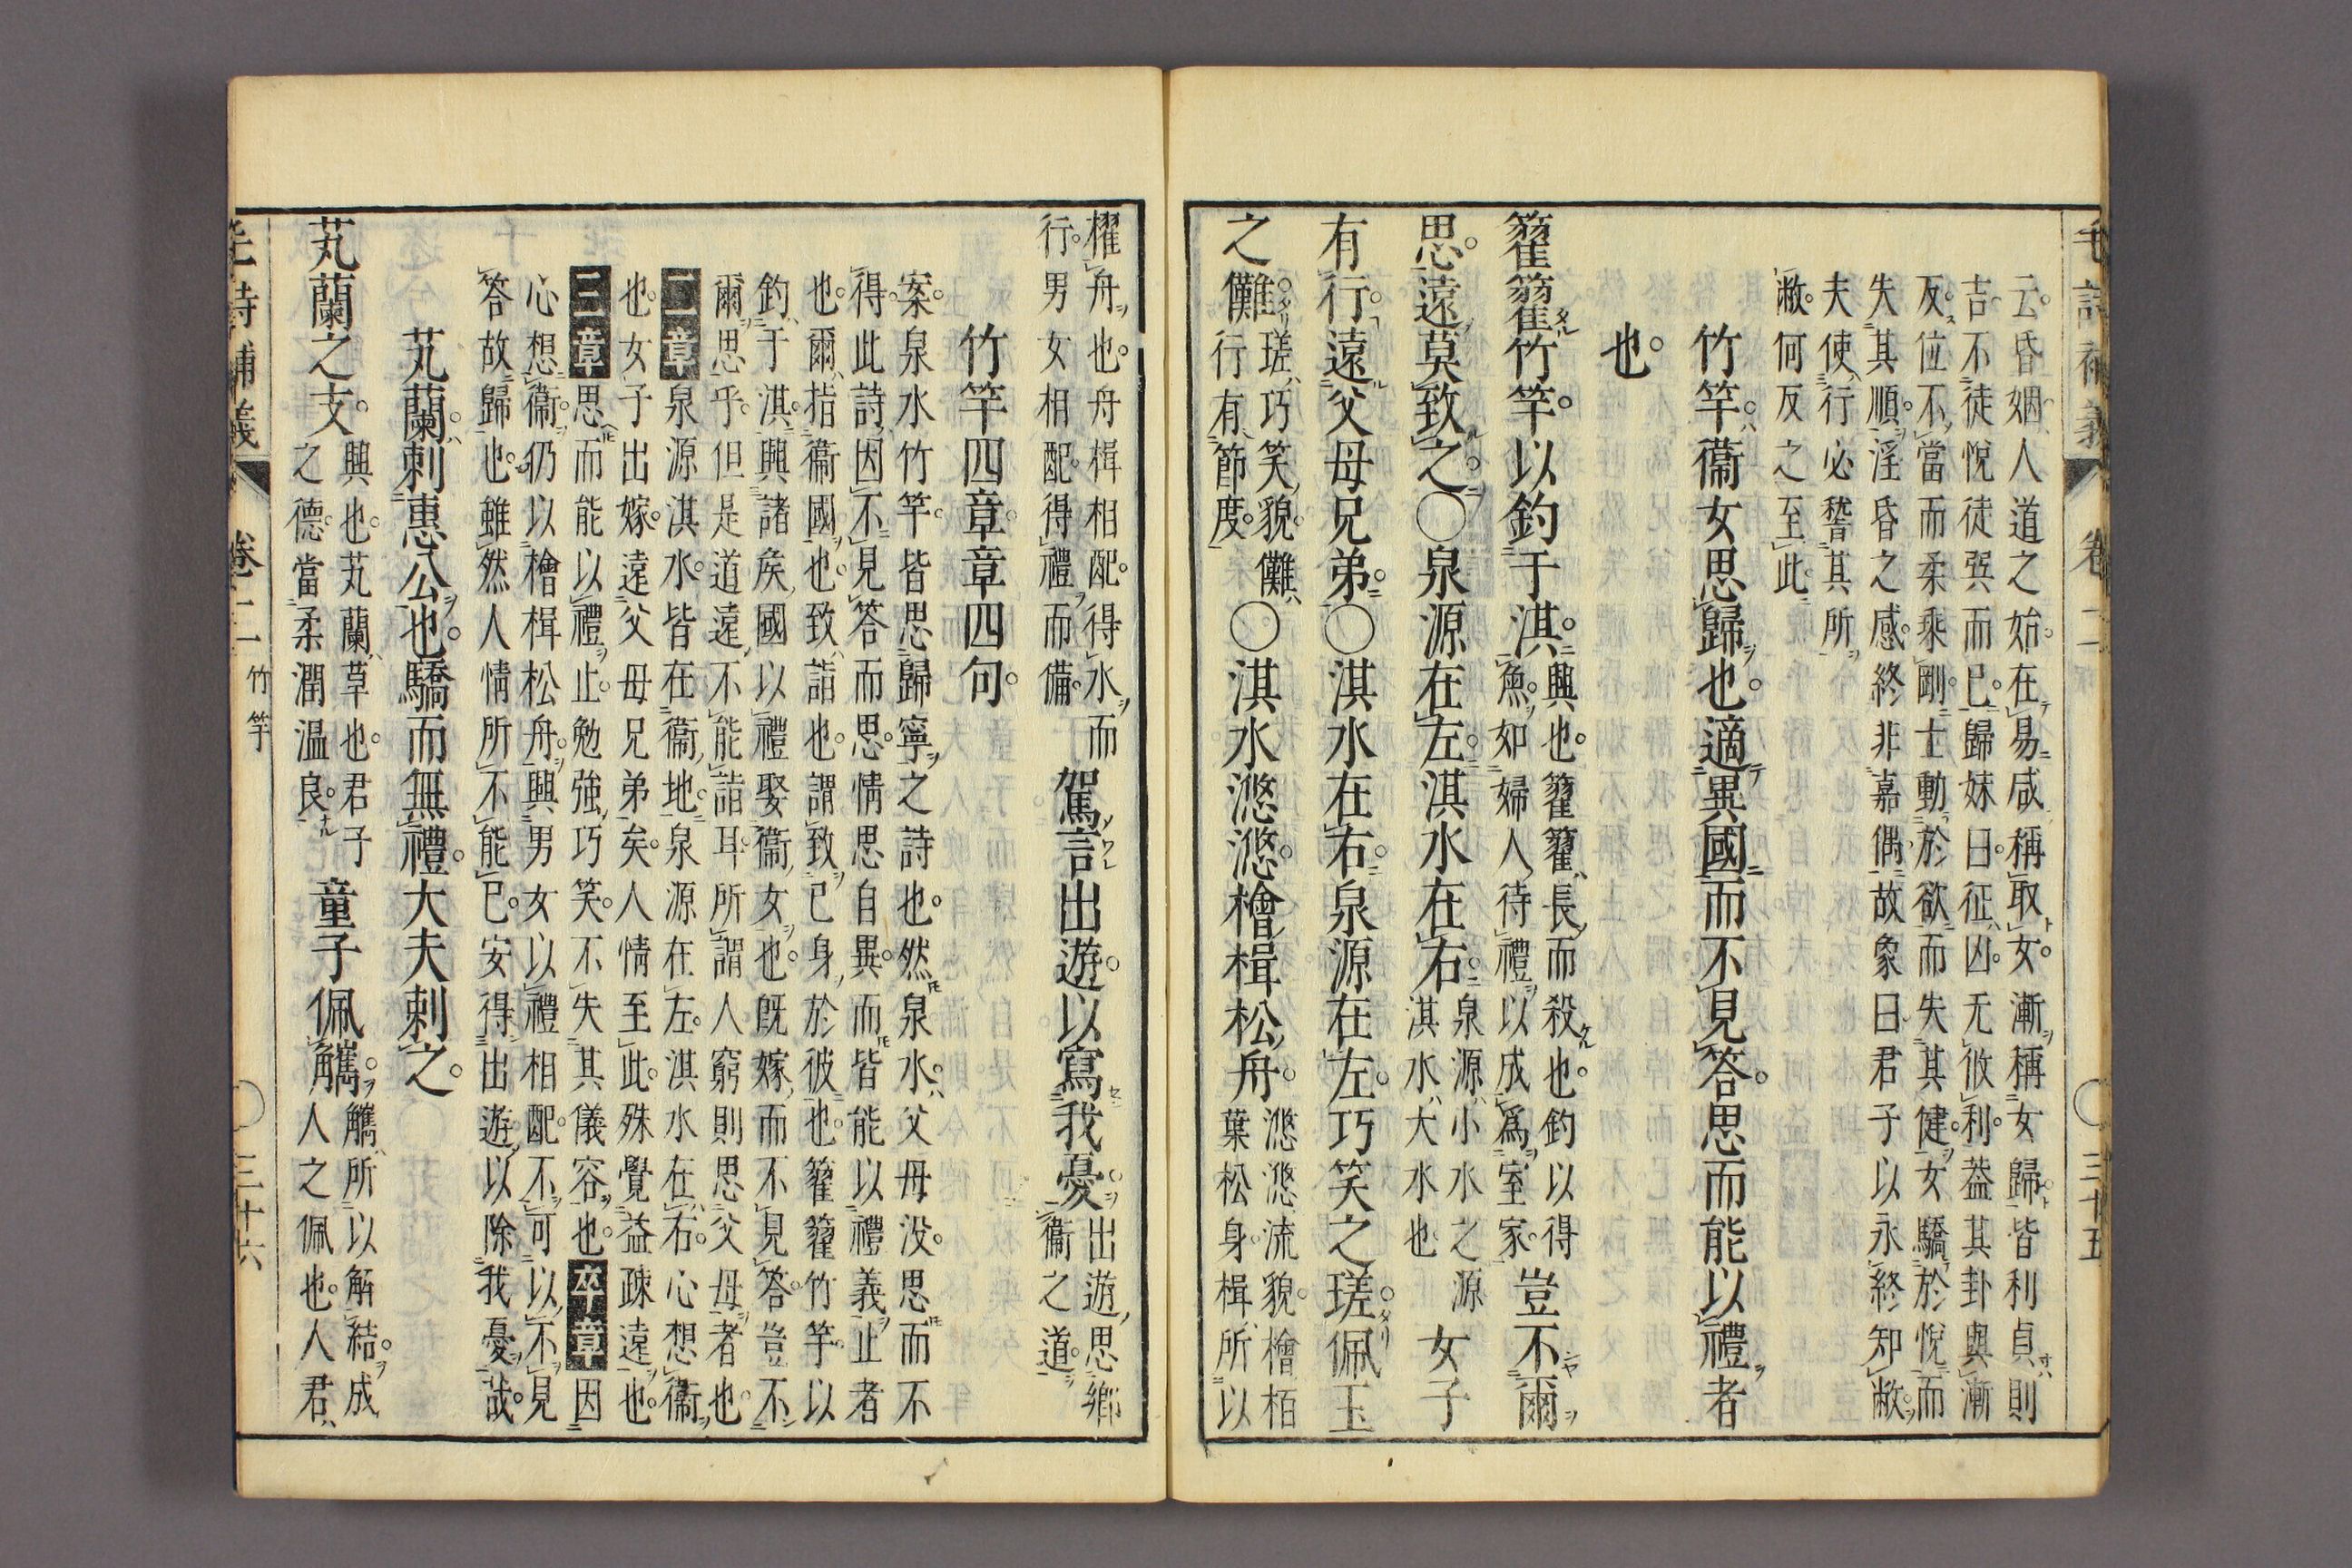 毛詩補義 卷二 三十五
云昏姻人道之始在易咸稱取女漸稱女歸皆利貞則
吉不徒悅徒巽而已歸妹曰征凶无攸利葢其卦與漸
反位不當而柔乘剛士動於欲而失其健女驕於悅而
失其順淫昏之感終非嘉偶故象曰君子以永終知敝
夫使行必誓其所
敝何反之至此
竹竿衞女思歸也適異國而不見答思而能以禮者
也
籊籊竹竿以釣于淇
興也籊籊長而殺也釣以得
魚如婦人待禮以成爲室家
豈不爾
思遠莫致之○泉源在左淇水在右
泉源小水之源
淇水大水也
女子
有行遠父母兄弟○淇水在右泉源在左巧笑之瑳佩玉
之儺
瑳巧笑貌儺
行有節度
○淇水滺滺檜楫松舟
滺滺流貌檜栢
葉松身楫所以
櫂舟也舟楫相配得水而
行男女相配得禮而備
駕言出遊以寫我憂
出遊思鄉
衞之道
竹竿四章章四句
案泉水竹竿皆思歸寧之詩也然泉水父母没思而不
得此詩因不見答而思情思自異而皆能以禮義止者
也爾指衞國也致詣也謂致已身於彼也籊籊竹竿以
釣于淇興諸矦國以禮娶衞女也旣嫁而不見答豈不
爾思乎但是道遠不能詣耳所謂人窮則思父母者也
二章泉源淇水皆在衞地泉源在左淇水在右心想衞
也女子出嫁遠父母兄弟矣人情至此殊覺益疎遠也
三章思而能以禮止勉強巧笑不失其儀容也卒章因
心想衞仍以檜楫松舟興男女以禮相配不可以不見
答故歸也雖然人情所不能已安得出遊以除我憂哉
芄蘭刺惠公也驕而無禮大夫刺之
芄蘭之支
興也芄蘭草也君子
之德當柔潤温良
童子佩觿
觿所以解結成
人之佩也人君
毛詩補義 卷二 竹竿 三十六